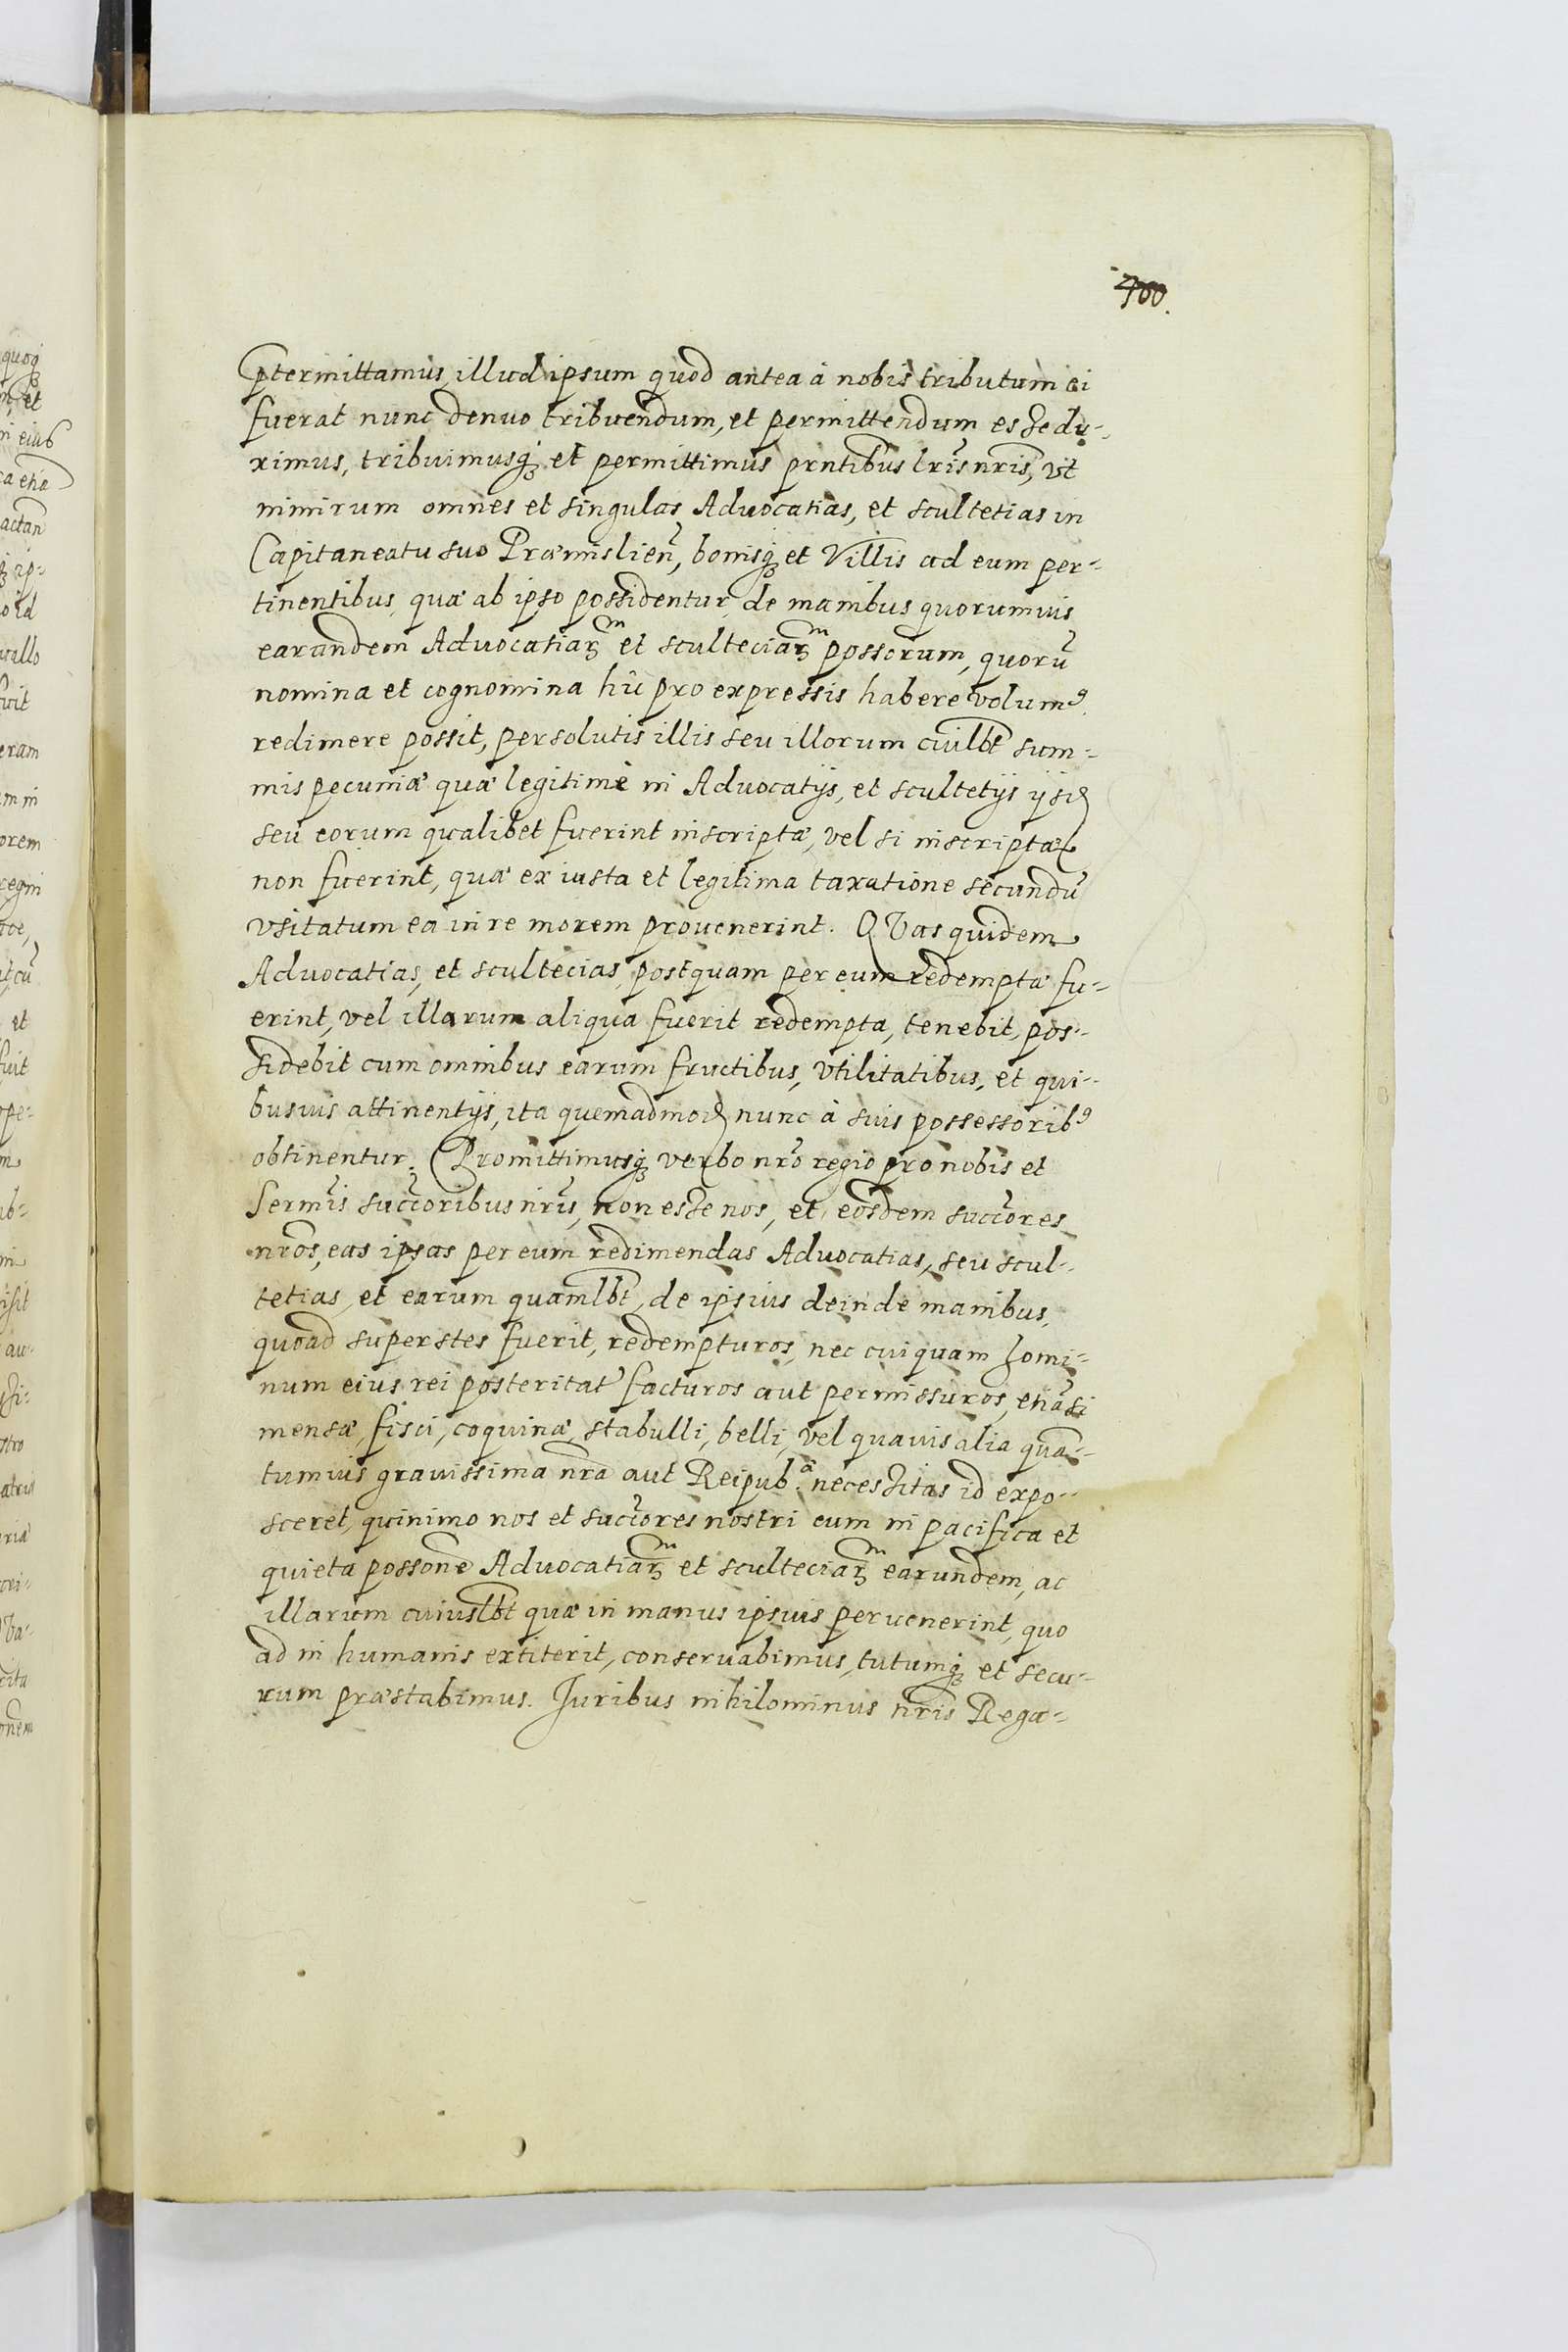 400.
p̃termittamus, illud ipsum quod antea à nobis tributum ei
fuerat nunc denuo tribuendum, et permittendum esse du-
ximus, tribuimusq₃ et permittimus prñtibus lr̃is nr̃is, vt
nimirum omnes et singulas Advocatias, et scultetias in
Capitaneatu suo Præmislien̄, bonisq₃ et Villis ad eum per-
tinentibus, quæ ab ipso possidentur, de manibus quorumuis
earundem Advocatiarᵐ et sculteciarᵐ possorum, quorũ
nomina et cognomina hîc pro expressis habere volumꝰ
redimere possit, persolutis illis seu illorum cuilb̃t sum-
mis pecuniæ quæ legitimè in Advocatijs, et scultetijs ijsd
seu eorum qualibet fuerint inscriptæ, vel si inscriptæ
non fuerint, quæ ex iusta et legitima taxatione secundũ
vsitatum ea in re morem prouenerint. QVas quidem
Advocatias, et scultecias, postquam per eum redemptæ fu-
erint, vel illarum aliqua fuerit redempta, tenebit, pos-
sidebit cum omnibus earum fructibus, vtilitatibus, et qui-
busuis attinentijs, ita quemadmod nunc à suis possessoribꝰ
obtinentur. Promittimusq₃ verbo nr̃o regio pro nobis et
Serm̃is succ̃oribus nr̃is, non esse nos, et eosdem succ̃ores
nr̃os, eas ipsas per eum redimendas Advocatias, seu scul-
tetias, et earum quamlb̃t, de ipsius deinde manibus,
quoad superstes fuerit, redempturos, nec cuiquam homi-
num eius rei posteritat' facturos aut permissuros, etiãsi
mensæ, fisci, coquinæ, stabulli, belli, vel quauis alia quã-
tumuis grauissima nr̃a aut Reipub.ᵃ necessitas id expo-
sceret, quinimo nos et succ̃ores nostri eum in pacifica et
quieta possone Advocatiarᵐ et sculteciarᵐ earundem, ac
illarum cuiuslb̃t quæ in manus ipsius peruenerint, quo
ad in humanis extiterit, conseruabimus, tutumq₃ et secu-
rum præstabimus. Juribus nihilominus nr̃is Rega-